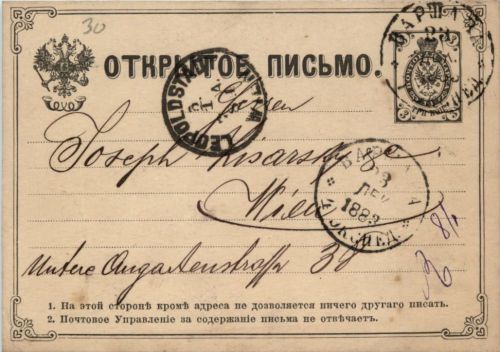 30
ВАРШАВА
23
ОТКРЫТОЕ ПИСЬМО.
LEOPOLDSTADT
Herren
Joseph
Wien
ВАРШАВА
1883
ЭКСПЕД.
Untere Augartenstrasse 30
1. На этой сторонѣ кромѣ адреса не дозволяется ничего другаго писать.
2. Почтовое Управленіе за содержаніе письма не отвѣчаетъ.